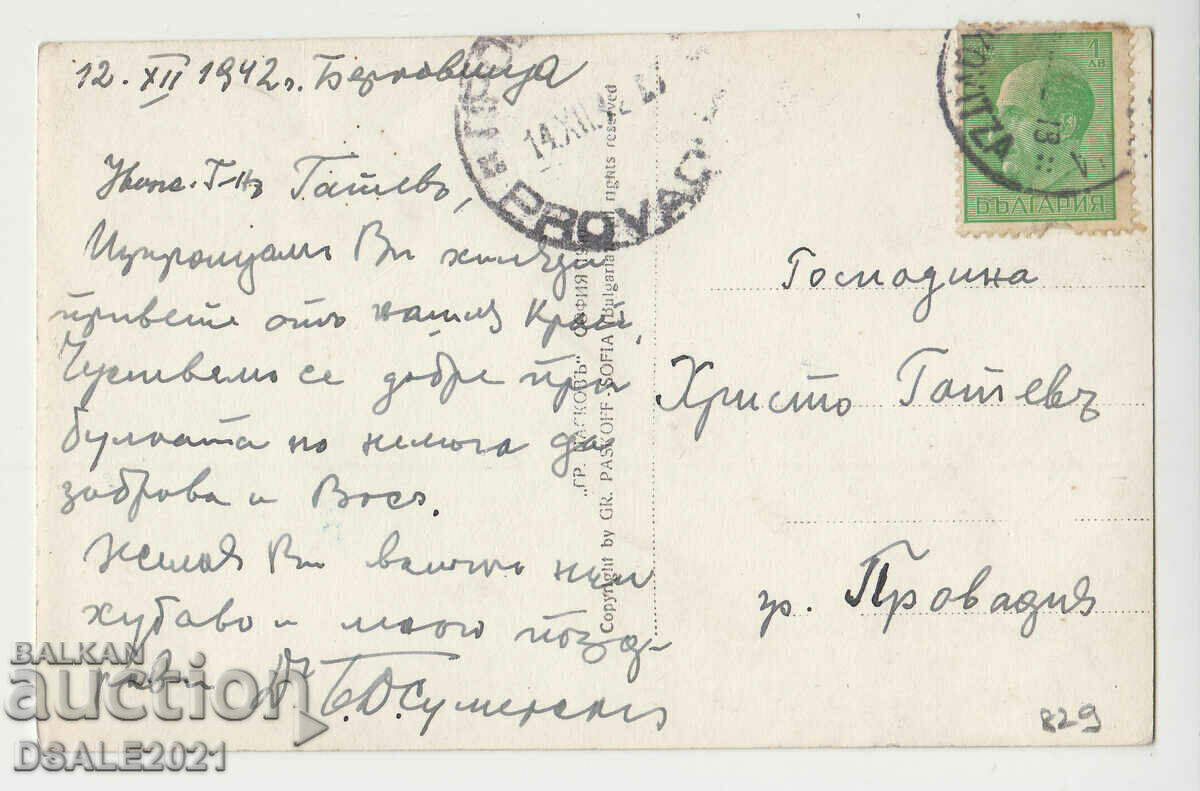 12. XII 1942 г. Берковица
Уваж. Г-нъ Гатевъ,
Изпращамъ Ви хиляди
привети отъ нашия край,
Чуствамъ се добре при
булката но немога да
забрава и Васъ.
Желая Ви всичко най
хубаво и много позд-
рави Др. Б. D.
PROVAD
14.XII.42
1
ЛВ
БЪЛГАРИЯ
„ГР. ПАСКОВЪ" СОФИЯ 19
Copyright by GR. PASKOFF - SOFIA (Bulgaria) All rights reserved
Господина
Христо Гатевъ
гр. Провадия
829
BALKAN
auction
DSALE2021